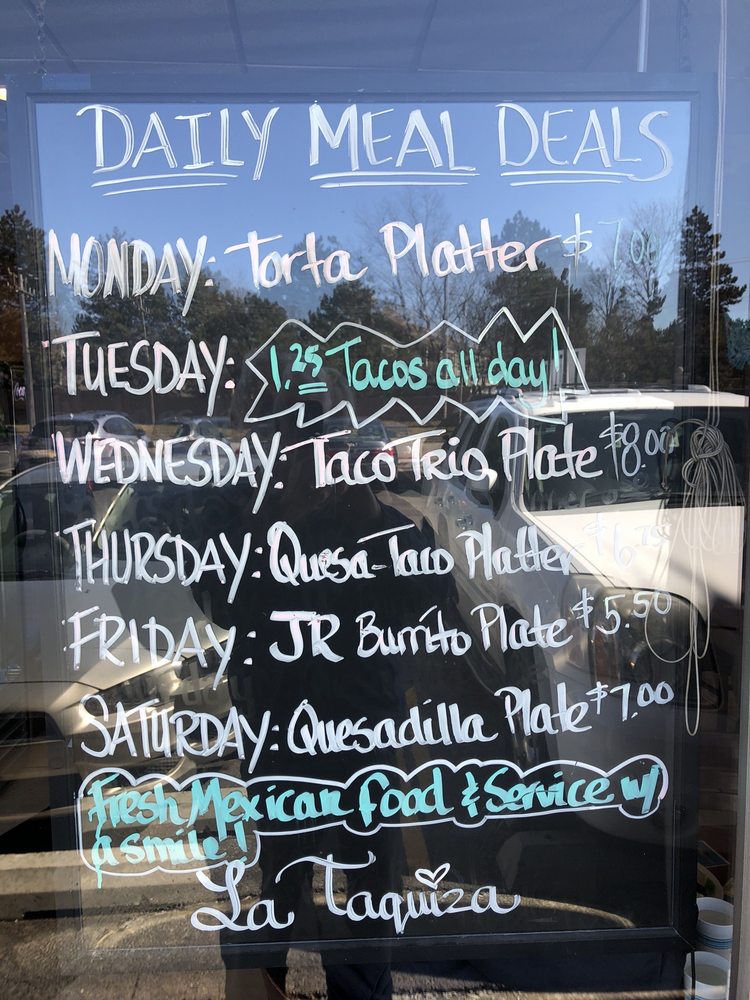 DAILY MEAL DEALS
MONDAY: Torta Platter $7.00
TUESDAY: 1.25 Tacos all day!
WEDNESDAY: Taco Trio Plate $8.00
THURSDAY: Quesa-Taco Platter $6.75
FRIDAY: JR Burrito Plate $5.50
SATURDAY: Quesadilla Plate $7.00
Fresh Mexican food & Service w/
a smile!
La Taquiza